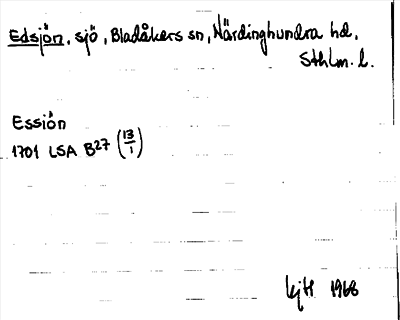 Edsjön, sjö, Bladåkers sn, Närdinghundra hd,
Sthlm. l.
Essiön
1701 LSA B27 (13/1)
kjH 1968